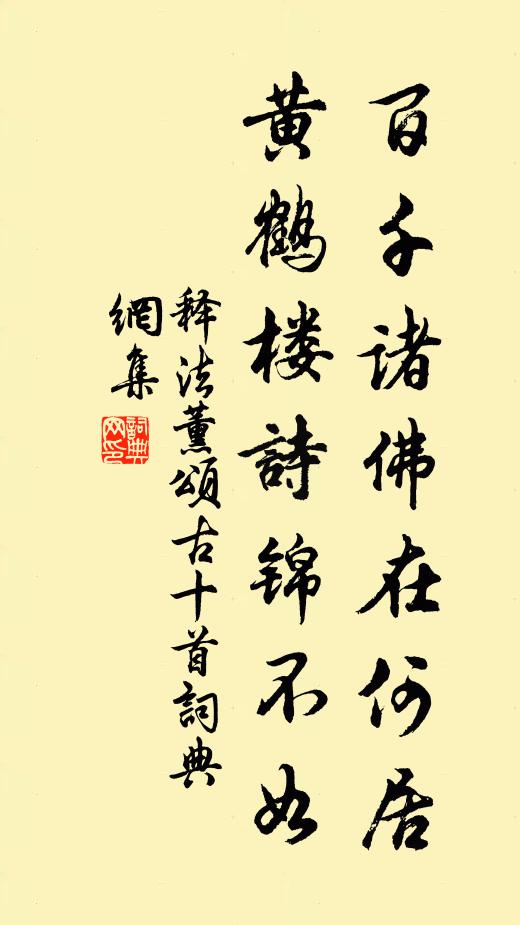 百千諸佛在何居
黃鶴楼詩錦不如
释法薰頌古十首詞典
網集
詞典
网印